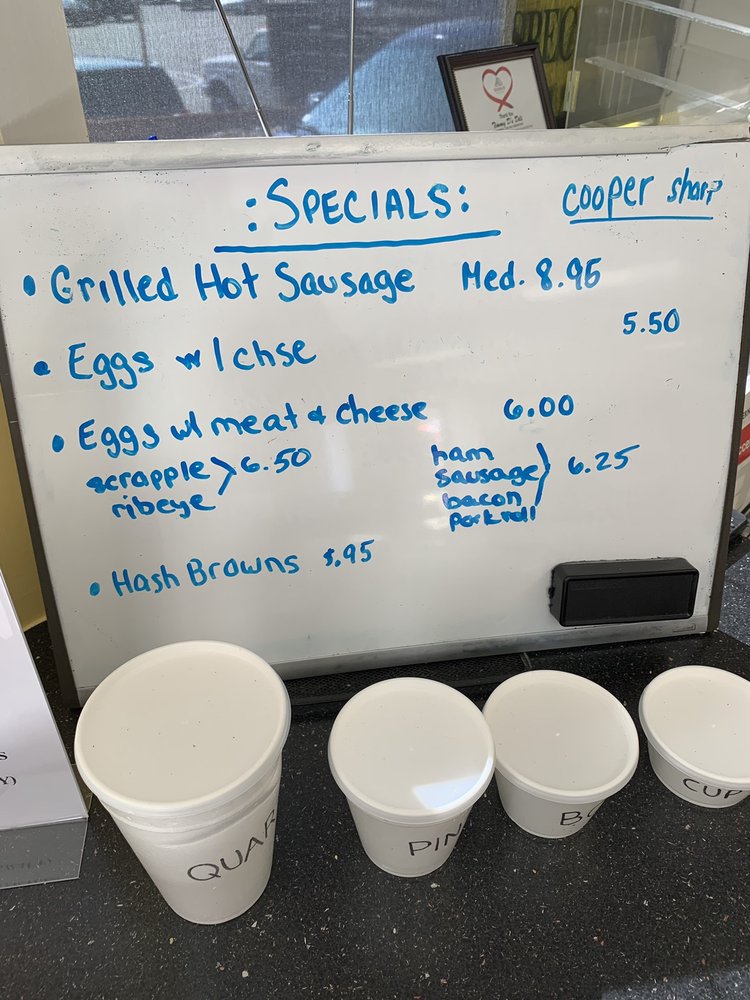 : SPECIALS :
cooper sharp
• Grilled Hot Sausage Med. 8.95
• Eggs w/chse 5.50
• Eggs w/ meat & cheese 6.00
scrapple
ribeye
6.50
ham
sausage
bacon
porkroll
6.25
• Hash Browns $.95
QUAR
PIN
B
CUP